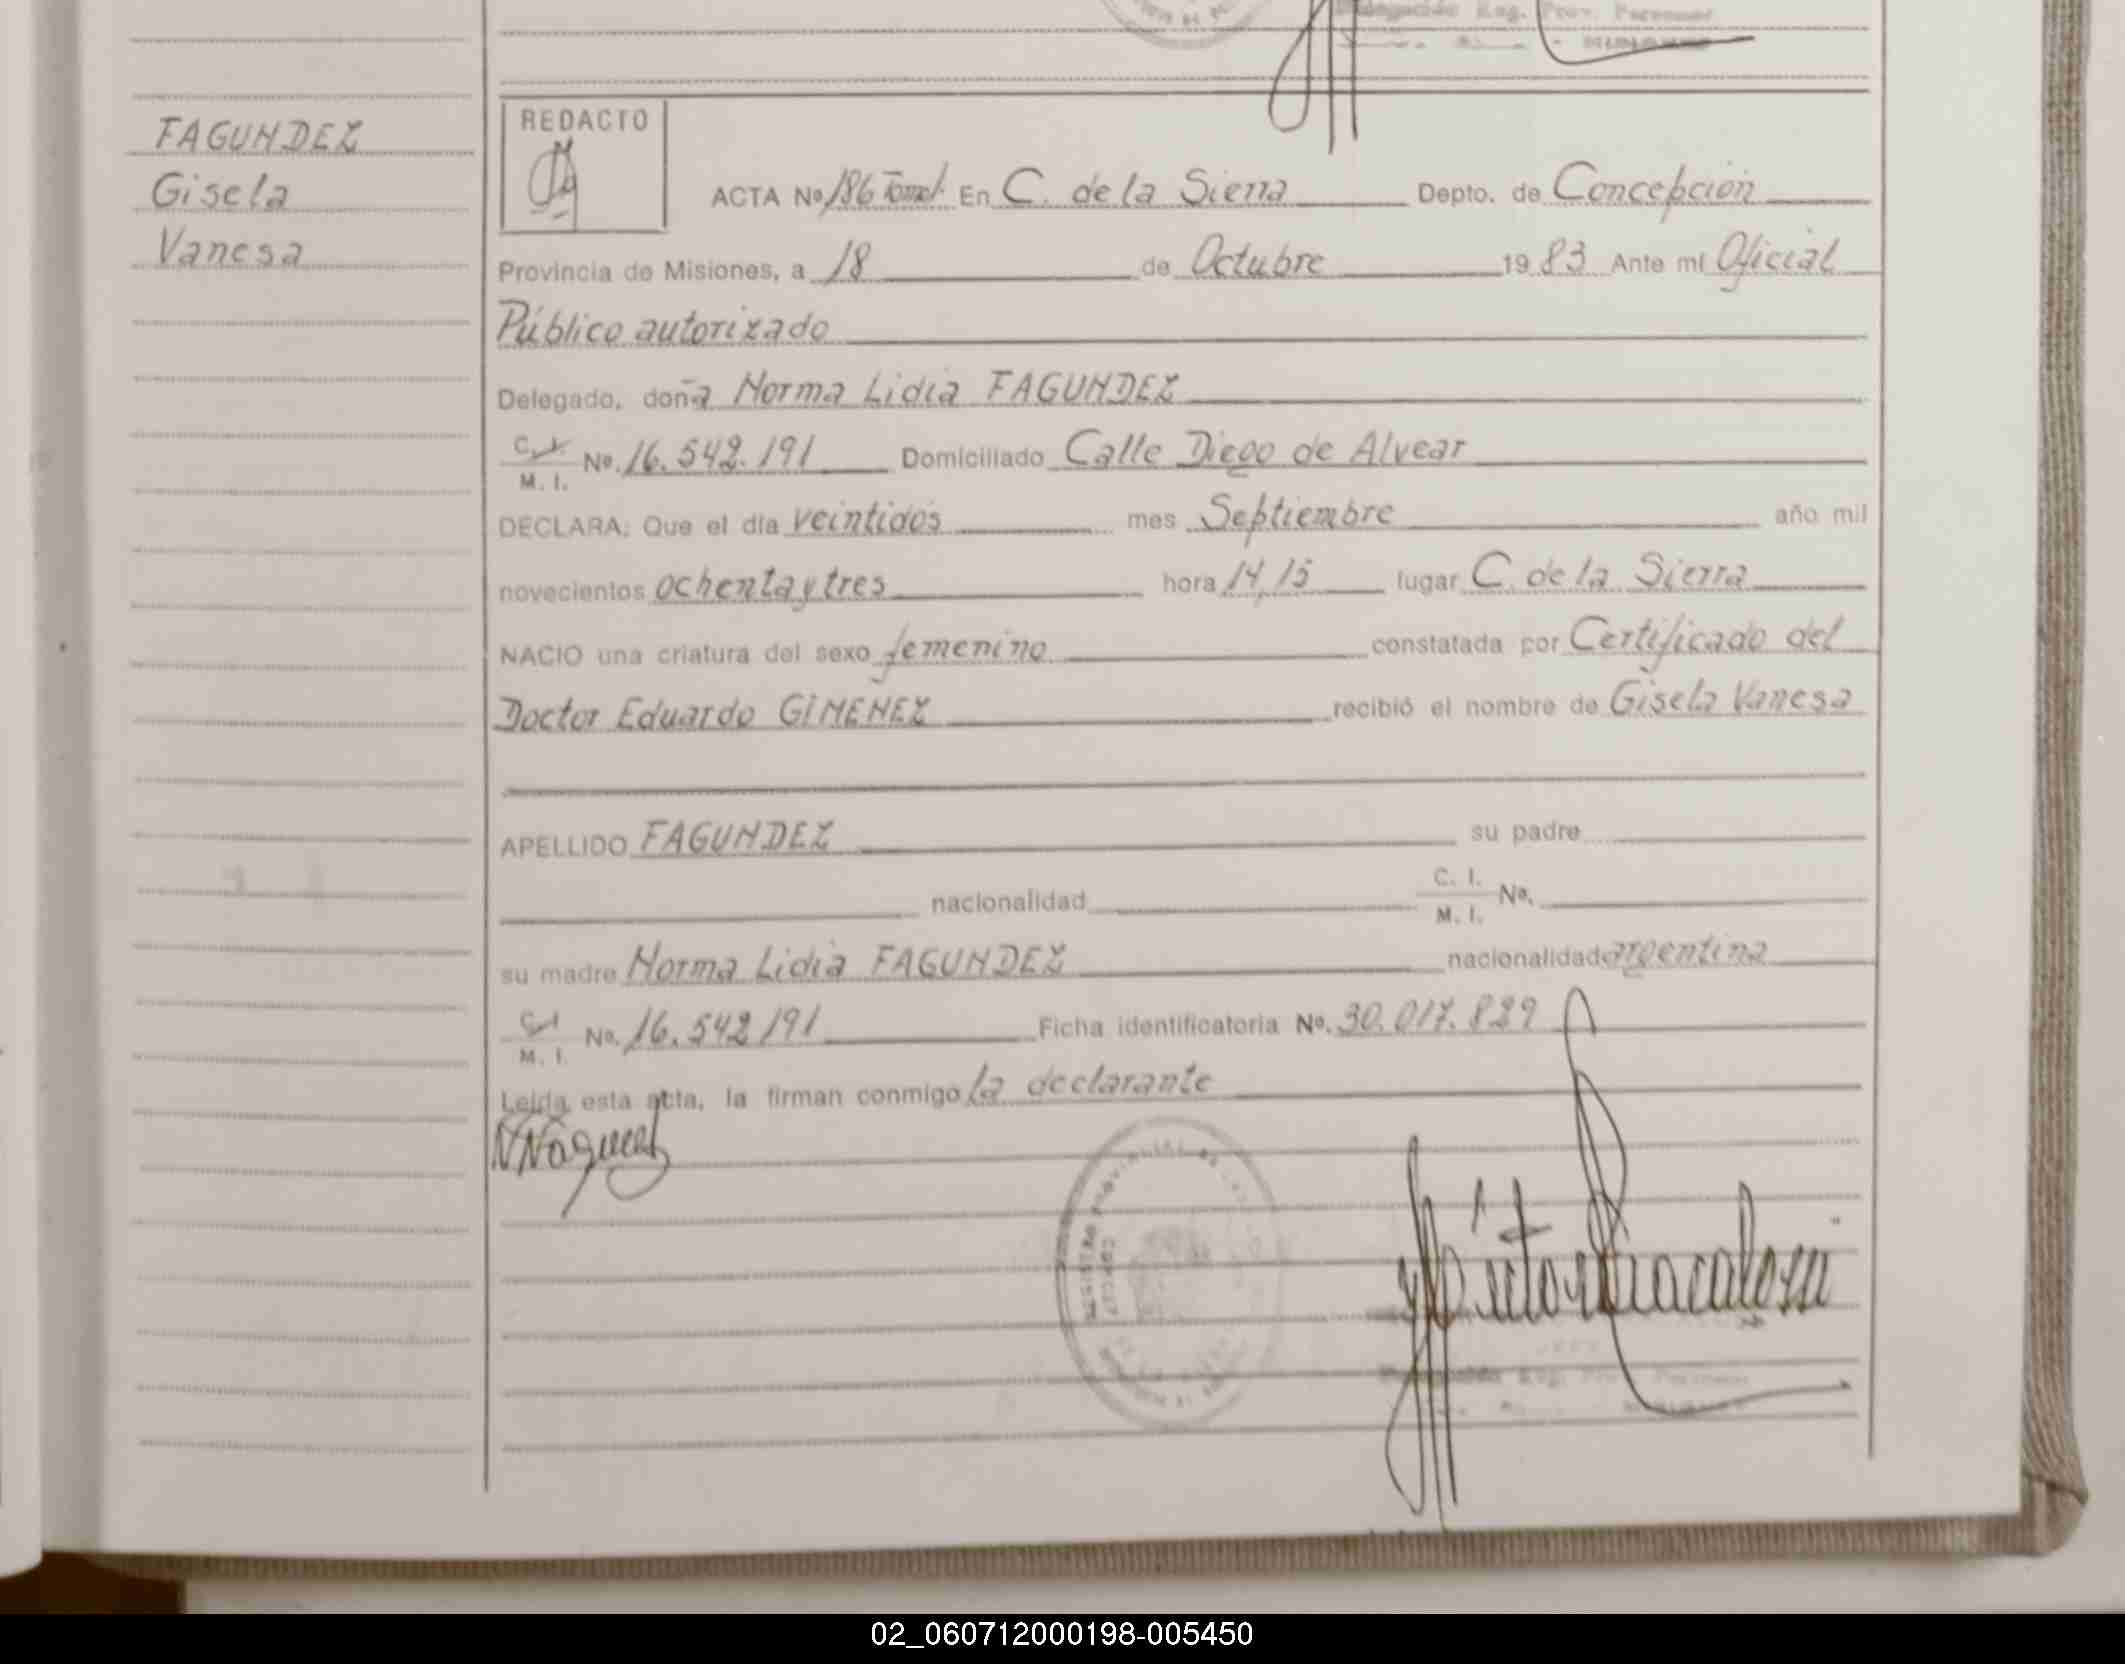 Delegación Reg. Prov. Personas
FAGUNDEZ
Gisela
Vanesa
REDACTO
ACTA Nº 186 Tomo I. En C. de la Sierra Depto. de Concepción
Provincia de Misiones, a 18 de Octubre 1983 Ante mí Oficial
Público autorizado
Delegado, doña Norma Lidia FAGUNDEZ
C. I. M. I. Nº. 16.542.191 Domiciliado Calle Diego de Alvear
DECLARA: Que el día veintidos mes Septiembre año mil
novecientos ochenta y tres hora 14,15 lugar C. de la Sierra
NACIO una criatura del sexo femenino constatada por Certificado del
Doctor Eduardo GIMENEZ recibió el nombre de Gisela Vanesa
APELLIDO FAGUNDEZ su padre
nacionalidad C. I. M. I. Nº.
su madre Norma Lidia FAGUNDEZ nacionalidad argentina
C. I. M. I. No. 16.542191 Ficha identificatoria Nº. 30.017.829
Leída esta acta, la firman conmigo la declarante
Reg. Prov. Personas
02_060712000198-005450